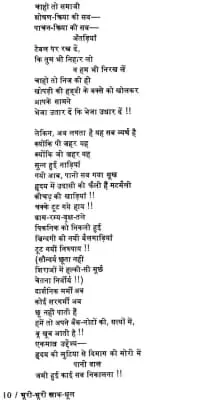 चाहो तो समाजी
शोषण-क्रिया की सब—
पाचन-क्रिया की सब—
अँतड़ियाँ
टेबल पर रख दें,
कि तुम भी निहार लो
व हम भी निरख लें
चाहो तो निज की ही
खोपड़ी की हड्डी के बक्से को खोलकर
आपके सामने
भेजा उतार दें कि भेजा उधार दें !!
लेकिन, अब लगता है यह सब व्यर्थ है
क्योंकि पी ज़हर यह
क्योंकि जी ज़हर यह
सुन्न हुई नाड़ियाँ
गयी आब, पानी सब गया सूख
हृदय में उदासी की फैली हैं मटमैली
कीचड़ की खाड़ियाँ !!
चक्के टूट गये हाय !!
ग्राम-रम्य-वृक्ष-तले
पिकनिक को निकली हुई
ज़िन्दगी की नयी बैलगाड़ियाँ
टूट गयीं निरुपाय !!
(सौन्दर्य छूता नहीं
शिराओं में हल्की-सी सुर्ख़
चेतना चिनगी !!)
दार्शनिक मर्मी अब
कोई सरगर्मी अब
छू नहीं पाती है
हमें तो अपने बैंक-नोटों की, सत्यों में,
बू ख़ूब आती है !!
एकमात्र उद्देश्य—
हृदय की लुटिया से दिमाग़ की मोरी में
पानी डाल
जमी हुई काई सब निकालना !!
10 / भूरी-भूरी ख़ाक-धूल